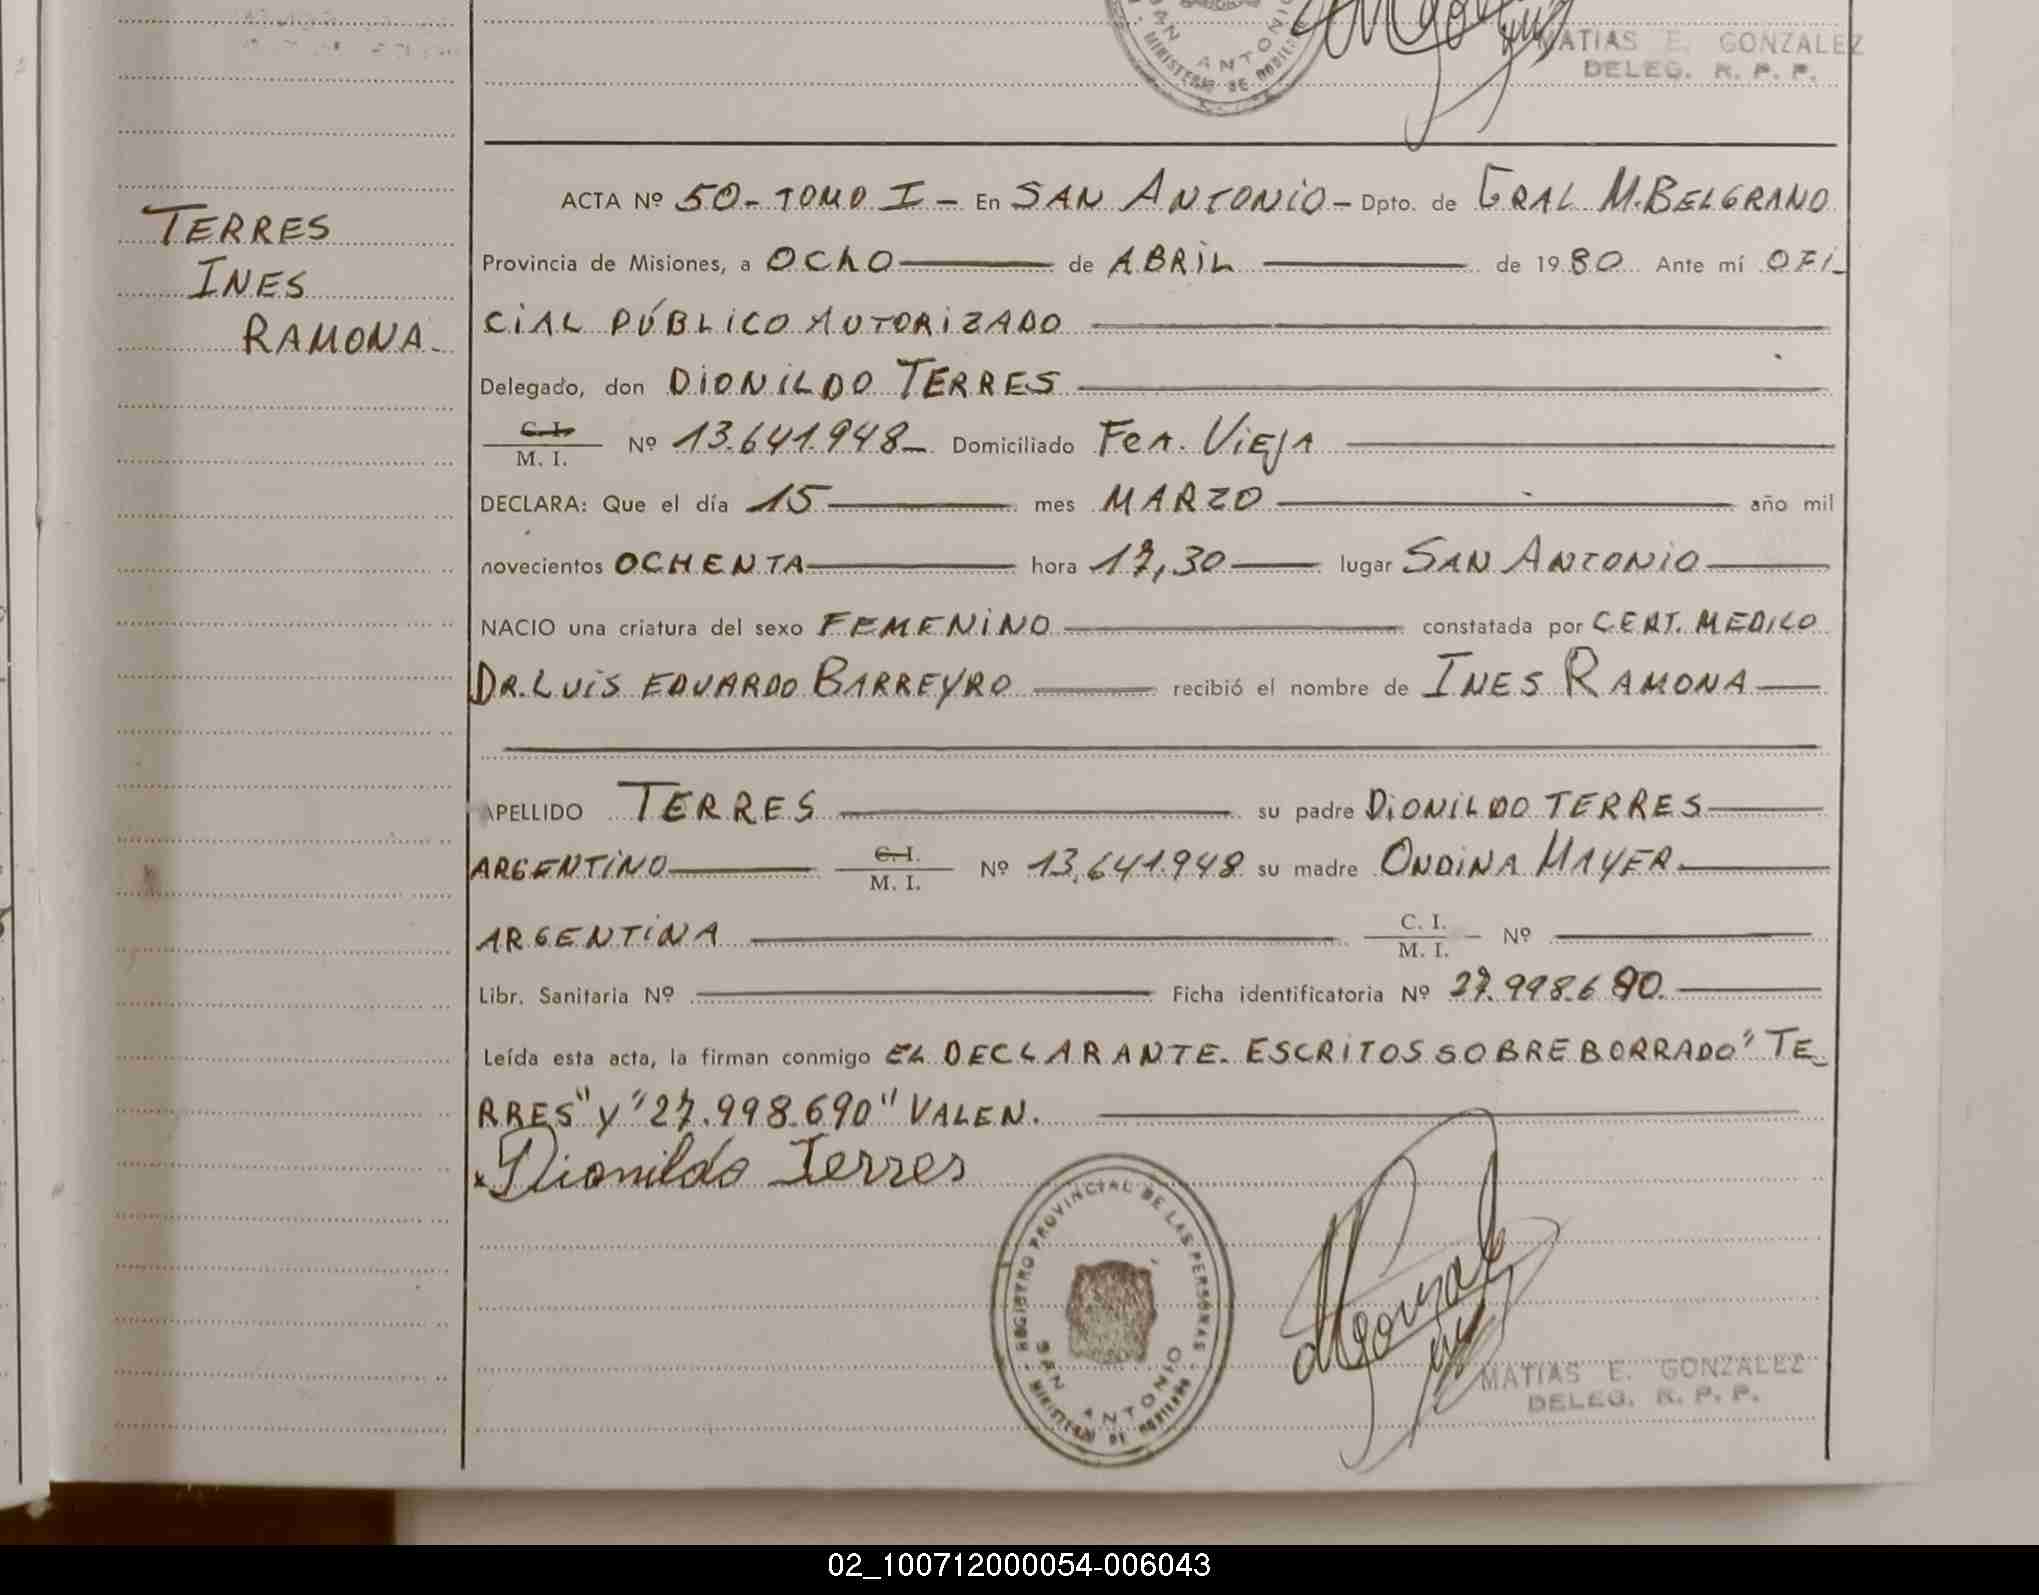 MATIAS E. GONZALEZ
DELEG. R. P. P.
SAN ANTONIO
MINISTERIO DE GOBIERNO
TERRES
INES
RAMONA
ACTA Nº 50 - TOMO I - En SAN ANTONIO - Dpto. de GRAL M. BELGRANO
Provincia de Misiones, a OCHO de ABRIL de 1980 Ante mí OFI-
CIAL PÚBLICO AUTORIZADO
Delegado, don DIONILDO TERRES
C. I. / M. I. Nº 13.641.948 - Domiciliado Fca. VIEJA
DECLARA: Que el día 15 mes MARZO año mil
novecientos OCHENTA hora 17,30 lugar SAN ANTONIO
NACIO una criatura del sexo FEMENINO constatada por CERT. MEDICO
DR. LUIS EDUARDO BARREYRO recibió el nombre de INES RAMONA
APELLIDO TERRES su padre DIONILDO TERRES
ARGENTINO C. I. / M. I. Nº 13.641.948 su madre ONDINA MAYER
ARGENTINA C. I. / M. I. Nº
Libr. Sanitaria Nº Ficha identificatoria Nº 27.998.690.
Leída esta acta, la firman conmigo EL DECLARANTE. ESCRITOS SOBRE BORRADO "TE-
RRES" y "27.998.690" VALEN.
x Dionildo Terres
REGISTRO PROVINCIAL DE LAS PERSONAS
SAN ANTONIO
MINISTERIO DE GOBIERNO
MATIAS E. GONZALEZ
DELEG. R. P. P.
02_100712000054-006043